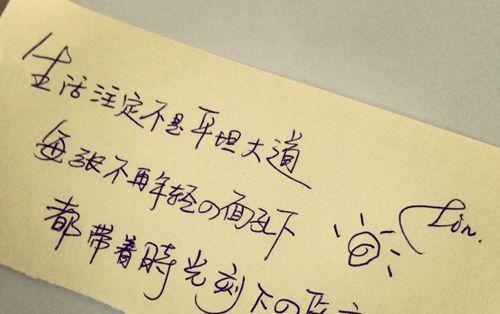 生活注定不是平坦大道
每张不再年轻の面孔下
都带着時光刻下の
Lin.